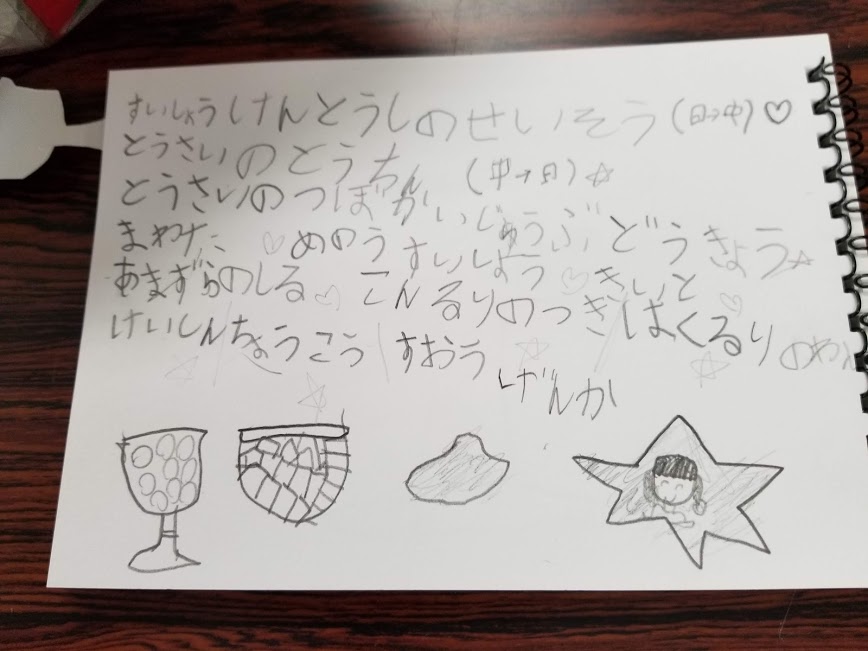 すいしょう けんとうしのせいそう(日→中)♡
とうさいのとうちん (中→日)☆
とうさいのつぼ がいじゅうぶどうきょう☆
まわた ♡めのう すいしょう♡きいと
あまずらのしる♡ こんるりのつき はくるりのわん
けいしんちょうこう すおう
げんか